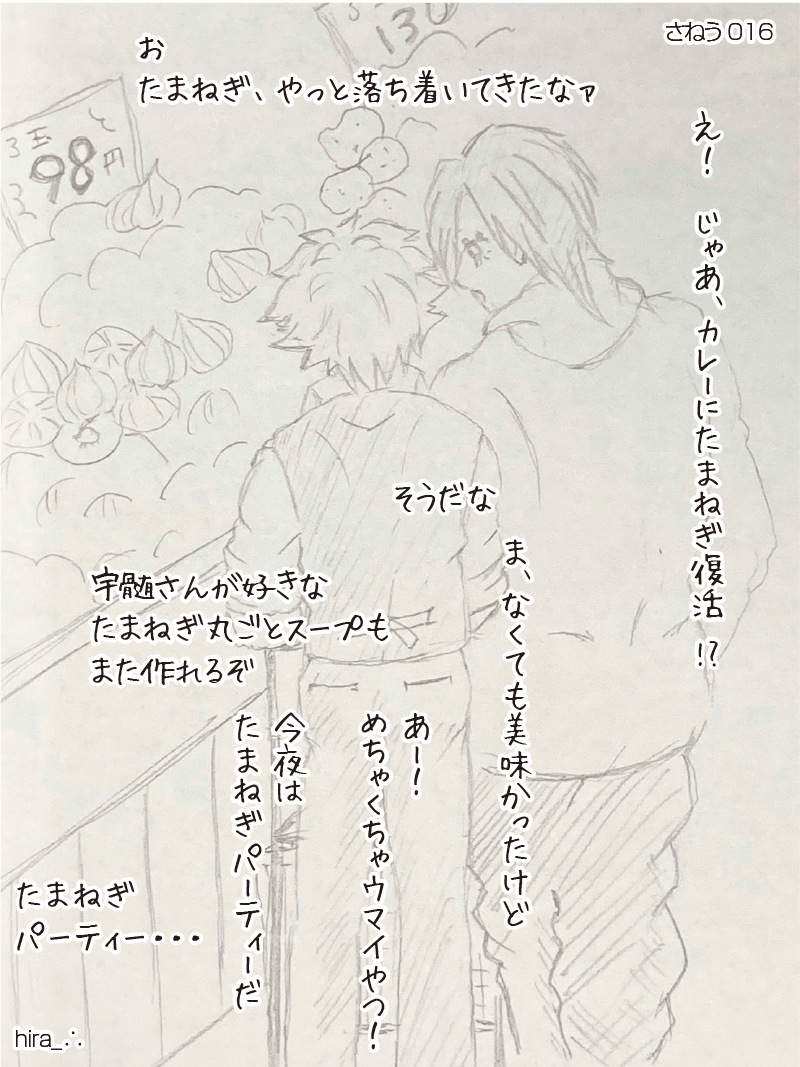 さねう016
130
3玉
98円
お
たまねぎ、やっと落ち着いてきたなァ
え! じゃあ、カレーにたまねぎ復活!?
そうだな
ま、なくても美味かったけど
宇髄さんが好きな
たまねぎ丸ごとスープも
また作れるぞ
あー!
めちゃくちゃウマイやつ!
今夜は
たまねぎパーティーだ
たまねぎ
パーティー・・・
hira_∴